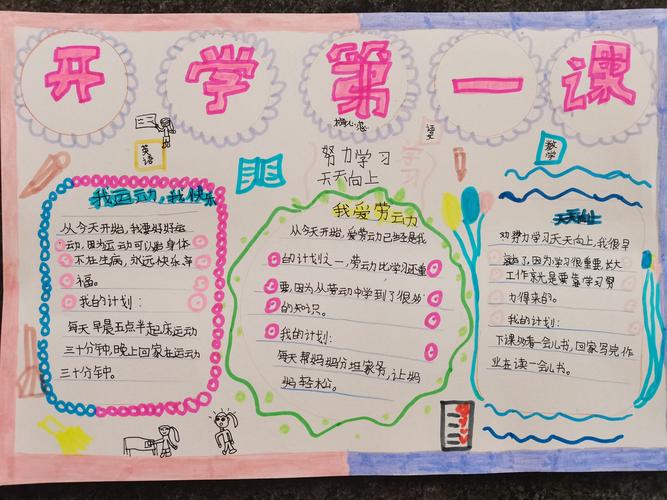 开学第一课
英语
语文
数学
努力学习
天天向上
学习
我运动,我快乐
从今天开始,我要好好运
动,因为运动可以给身体
不在生病,永远快乐幸
福。
我的计划:
每天早晨五点半起床运动
三十分钟,晚上回家在运动
三十分钟。
我爱劳动
从今天开始,爱劳动已经是我
的计划之一,劳动比学习还重
要,因为从劳动中学到了很多
的知识。
我的计划:
每天帮妈妈分担家务,让妈
妈轻松。
天天向上
努力学习天天向上,我很早
因为学习很重要,长大
工作就是要靠学习努
力得来的。
我的计划:
下课时看一会儿书,回家写完作
业在读一会儿书。